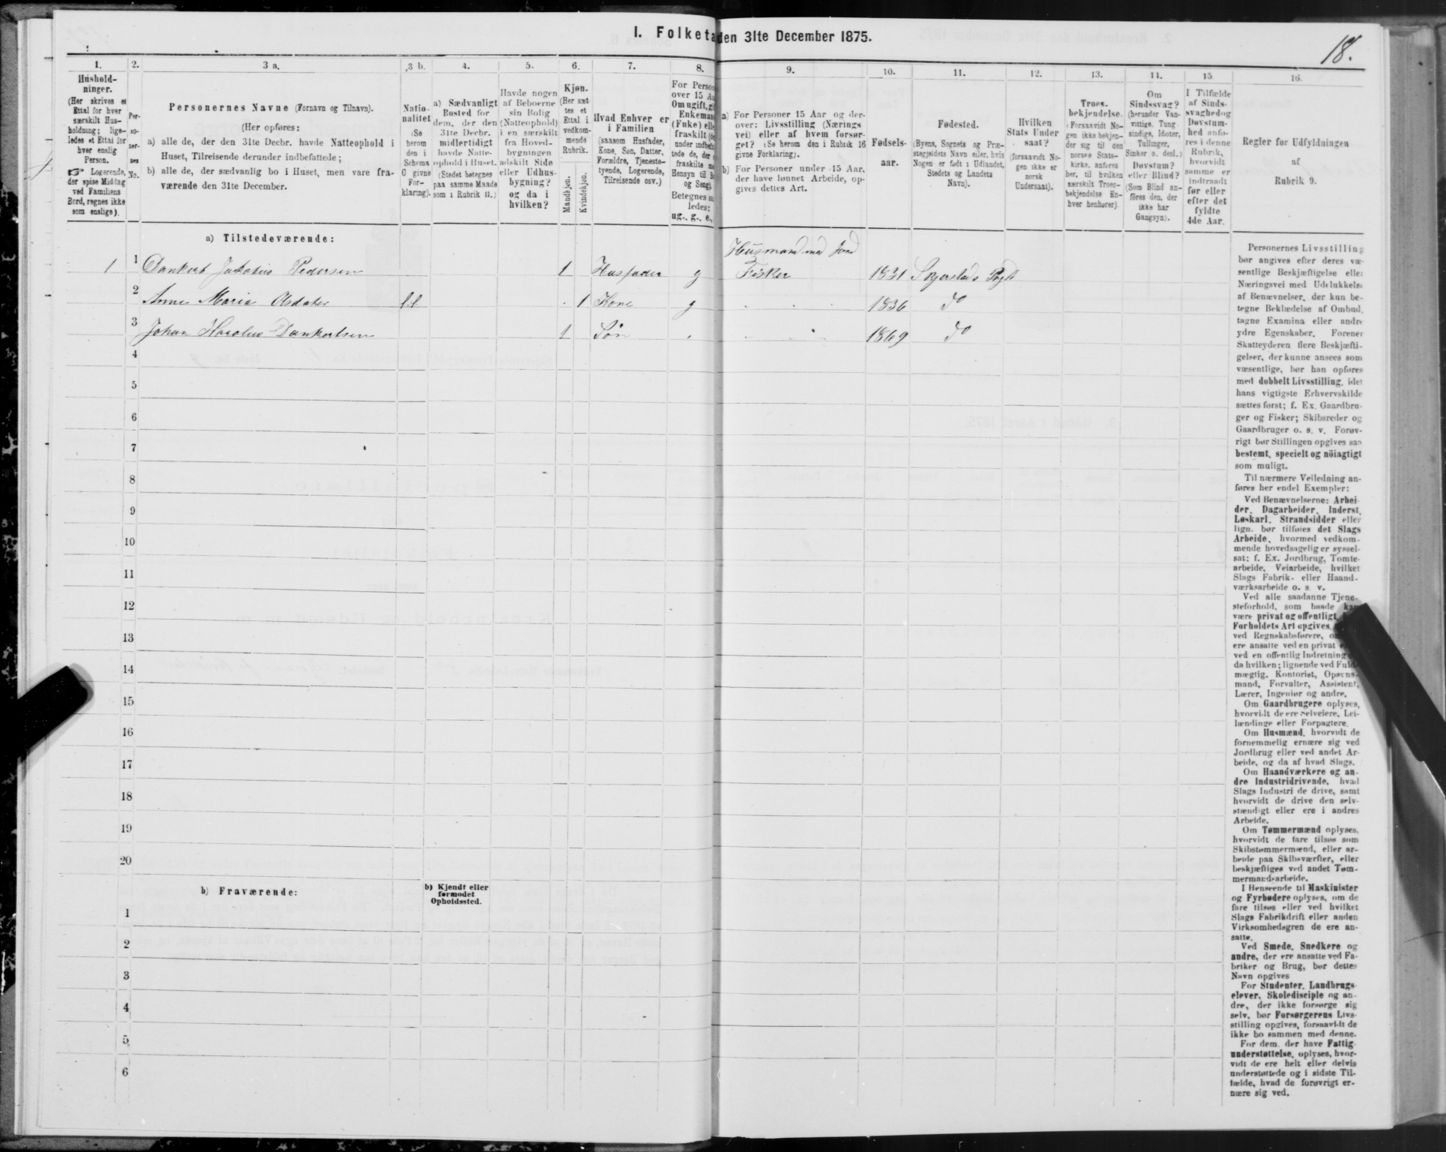 I. Folketa
den 31te December 1875.
18.
1.
2.
3 a.
3 b.
4.
5.
6.
7.
8.
9.
10.
11.
12.
13.
14.
15
16.
Hushold-
ninger.
(Her skrives et
Ettal for hver
særskilt Hus-
holdning; lige-
ledes et Ettal for
hver enslig
Person.
☞ Logerende,
der spise Middag
ved Familiens
Bord, regnes ikke
som enslige).
Per-
so-
ner-
nes
No.
Personernes Navne (Fornavn og Tilnavn).
(Her opføres:
a) alle de, der den 31te Decbr. havde Natteophold i
Huset, Tilreisende derunder indbefattede;
b) alle de, der sædvanlig bo i Huset, men vare fra-
værende den 31te December.
Natio-
nalitet
(Se
herom
den i
Schema
O givne
For-
klaring).
a) Sædvanligt
Bosted for
dem, der den
31te Decbr.
midlertidigt
havde Natte-
ophold i Huset.
(Stedet betegnes
paa samme Maade
som i Rubrik 11.)
Havde nogen
af Beboerne
sin Bolig
(Natteophold)
i en særskilt
fra Hoved-
bygningen
adskilt Side
eller Udhus-
bygning?
og da i
hvilken?
Kjøn.
(Her sæt-
tes et
Ettal i
vedkom-
mende
Rubrik.
Mandkjøn.
Kvindekjøn.
Hvad Enhver er
i Familien
(saasom Husfader,
Kone, Søn, Datter,
Forældre, Tjeneste-
tyende, Logerende,
Tilreisende osv.)
For Perso
over 15 A
Om ugift, gi
Enkeman
(Enke) elle
fraskilt
under indbefa
Betegnes s
ledes:
ug., g., e.,
a) For Personer 15 Aar og der-
over: Livsstilling (Nærings
vei) eller af hvem forsør-
get? (Se herom den i Rubrik 16
givne Forklaring).
b) For Personer under 15 Aar,
der have lønnet Arbeide, op-
gives dettes Art.
Fødsels-
aar.
Fødested.
(Byens, Sognets og Præ-
stegjeldets Navn eller, hvis
Nogen er født i Udlandet,
Stedets og Landets
Navn).
Hvilken
Stats Under
saat?
(forsaavidt No-
gen ikke er
norsk
Undersaat).
Troes-
bekjendelse.
(Forsaavidt No-
gen ikke bekjen-
der sig til den
norske Stats-
kirke, anføres
her, til hvilken
særskilt Troes-
bekjendelse En-
hver henhører).
Om
Sindssvag?
(herunder Van-
vittige, Tung
sindige, Idioter,
Tullinger,
Sinker o. desl.)
Døvstum?
eller Blind?
(Som Blind an-
føres den, der
ikke har
Gangsyn).
I Tilfælde
af Sinds-
svaghed og
Døvstum-
hed anfø-
res i denne
Rubrik,
hvorvidt
samme er
indtraadt
før eller
efter det
fyldte
4de Aar.
Regler for Udfyldningen
af
Rubrik 9.
a) Tilstedeværende:
1 1 Dankert Jakobius Pedersen 1 Husfader g Husmand med Jord Fisker 1831 Pgt
2 Anne Maria Olsdater 1 Kone g 1836 do
3 Johan Dankertsen 1 Søn 1869 do
4
5
6
7
8
9
10
11
12
13
14
15
16
17
18
19
20
b) Fraværende:
b) Kjendt eller
formodet
Opholdssted.
1
2
3
4
5
6
Personernes Livsstilling
bør angives efter deres væ-
sentlige Beskjæftigelse eller
Næringsvei med Udelukkelse
af Benævnelser, der kun be-
tegne Beklædelse af Ombud,
tagne Examina eller andre
ydre Egenskaber. Forener
Skatteyderen flere Beskjæfti-
gelser, der kunne ansees som
væsentlige, bør han opføres
med dobbelt Livsstilling, idet
hans vigtigste Erhvervskilde
sættes først; f. Ex. Gaardbru-
ger og Fisker; Skibsreder og
Gaardbruger o. s. v. Forøv-
rigt bør Stillingen opgives saa
bestemt, specielt og nöiagtigt
som muligt.
Til nærmere Veiledning an-
føres her endel Exempler:
Ved Benævnelserne: Arbei-
der, Dagarbeider, Inderst,
Løskarl, Strandsidder eller
lign. bør tilføies det Slags
Arbeide, hvormed vedkom-
mende hovedsagelig er syssel-
sat; f. Ex. Jordbrug, Tomte-
arbeide, Veiarbeide, hvilket
Slags Fabrik- eller Haand-
værksarbeide o. s. v.
Ved alle saadanne Tjene-
steforhold, som baade kan
være privat og offentligt,
Forholdets Art opgives,
ved Regnskabsførere, o
ere ansatte ved en privat
ved en offentlig Indretning
da hvilken; lignende ved Fuld-
mægtig, Kontorist, Opsyns-
mand, Forvalter, Assistent,
Lærer, Ingeniør og andre.
Om Gaardbrugere oplyses,
hvorvidt de ere Selveiere, Lei-
lændinge eller Forpagtere.
Om Husmænd, hvorvidt de
fornemmelig ernære sig ved
Jordbrug eller ved andet Ar-
beide, og da af hvad Slags.
Om Haandværkere og an-
dre Industridrivende, hvad
Slags Industri de drive, samt
hvorvidt de drive den selv-
stændigt eller ere i andres
Arbeide.
Om Tømmermænd oplyses,
hvorvidt de fare tilsøs som
Skibstømmermænd, eller ar-
beide paa Skibsværfter, eller
beskjæftiges ved andet Tøm-
mermandsarbeide.
I Henseende til Maskinister
og Fyrbødere oplyses, om de
fare tilsøs eller ved hvilket
Slags Fabrikdrift eller anden
Virksomhedsgren de ere an-
satte.
Ved Smede, Snedkere og
andre, der ere ansatte ved Fa-
briker og Brug, bør dettes
Navn opgives
For Studenter, Landbrugs-
elever, Skoledisciple og an-
dre, der ikke forsørge sig
selv, bør Forsørgerens Livs-
stilling opgives, forsaavidt de
ikke bo sammen med denne.
For dem, der have Fattig-
understøttelse, oplyses, hvor-
vidt de ere helt eller delvis
understøttede og i sidste Til-
fælde, hvad de forøvrigt er-
nære sig ved.